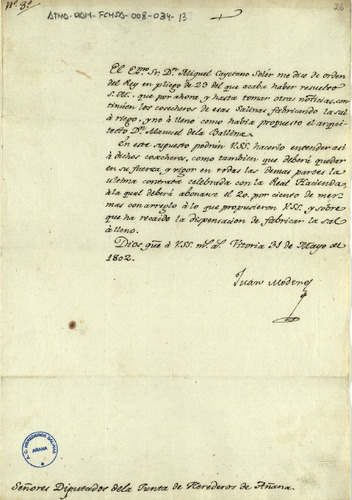 Nº. 8º.
ATHA-DAH-FCHSA-008-034-13
26
El Exmo. Sr. Dn. Miguel Cayetano Solér me dice de orden
del Rey en pliego de 23 del que acaba haber resuelto
S. M. que por ahora, y hasta tomar otras noticias, con-
tinúen los cosecheros de esas Salinas fabricando la sal
á riego, y no á lleno como habia propuesto el arqui-
tecto Dn. Manuel de la Ballina.
En este supuesto podrán V.SS. hacerlo entender asi
á dichos cosecheros, como tambien que deberá quedar
en su fuerza, y vigor en todas las demas partes la
ultima contrata celebrada con la Real Hacienda,
á la qual deberá abonarse el 20. por ciento de mer-
mas con arreglo á lo que propusieron V.SS. y sobre
que ha recaido la dispensacion de fabricar la sal
á lleno.
Dios gue. á V.SS. ms. as. Vitoria 31 de Mayo de
1802.
Juan Modenes
AÑANA
Señores Diputados de la Junta de Herederos de Añana.